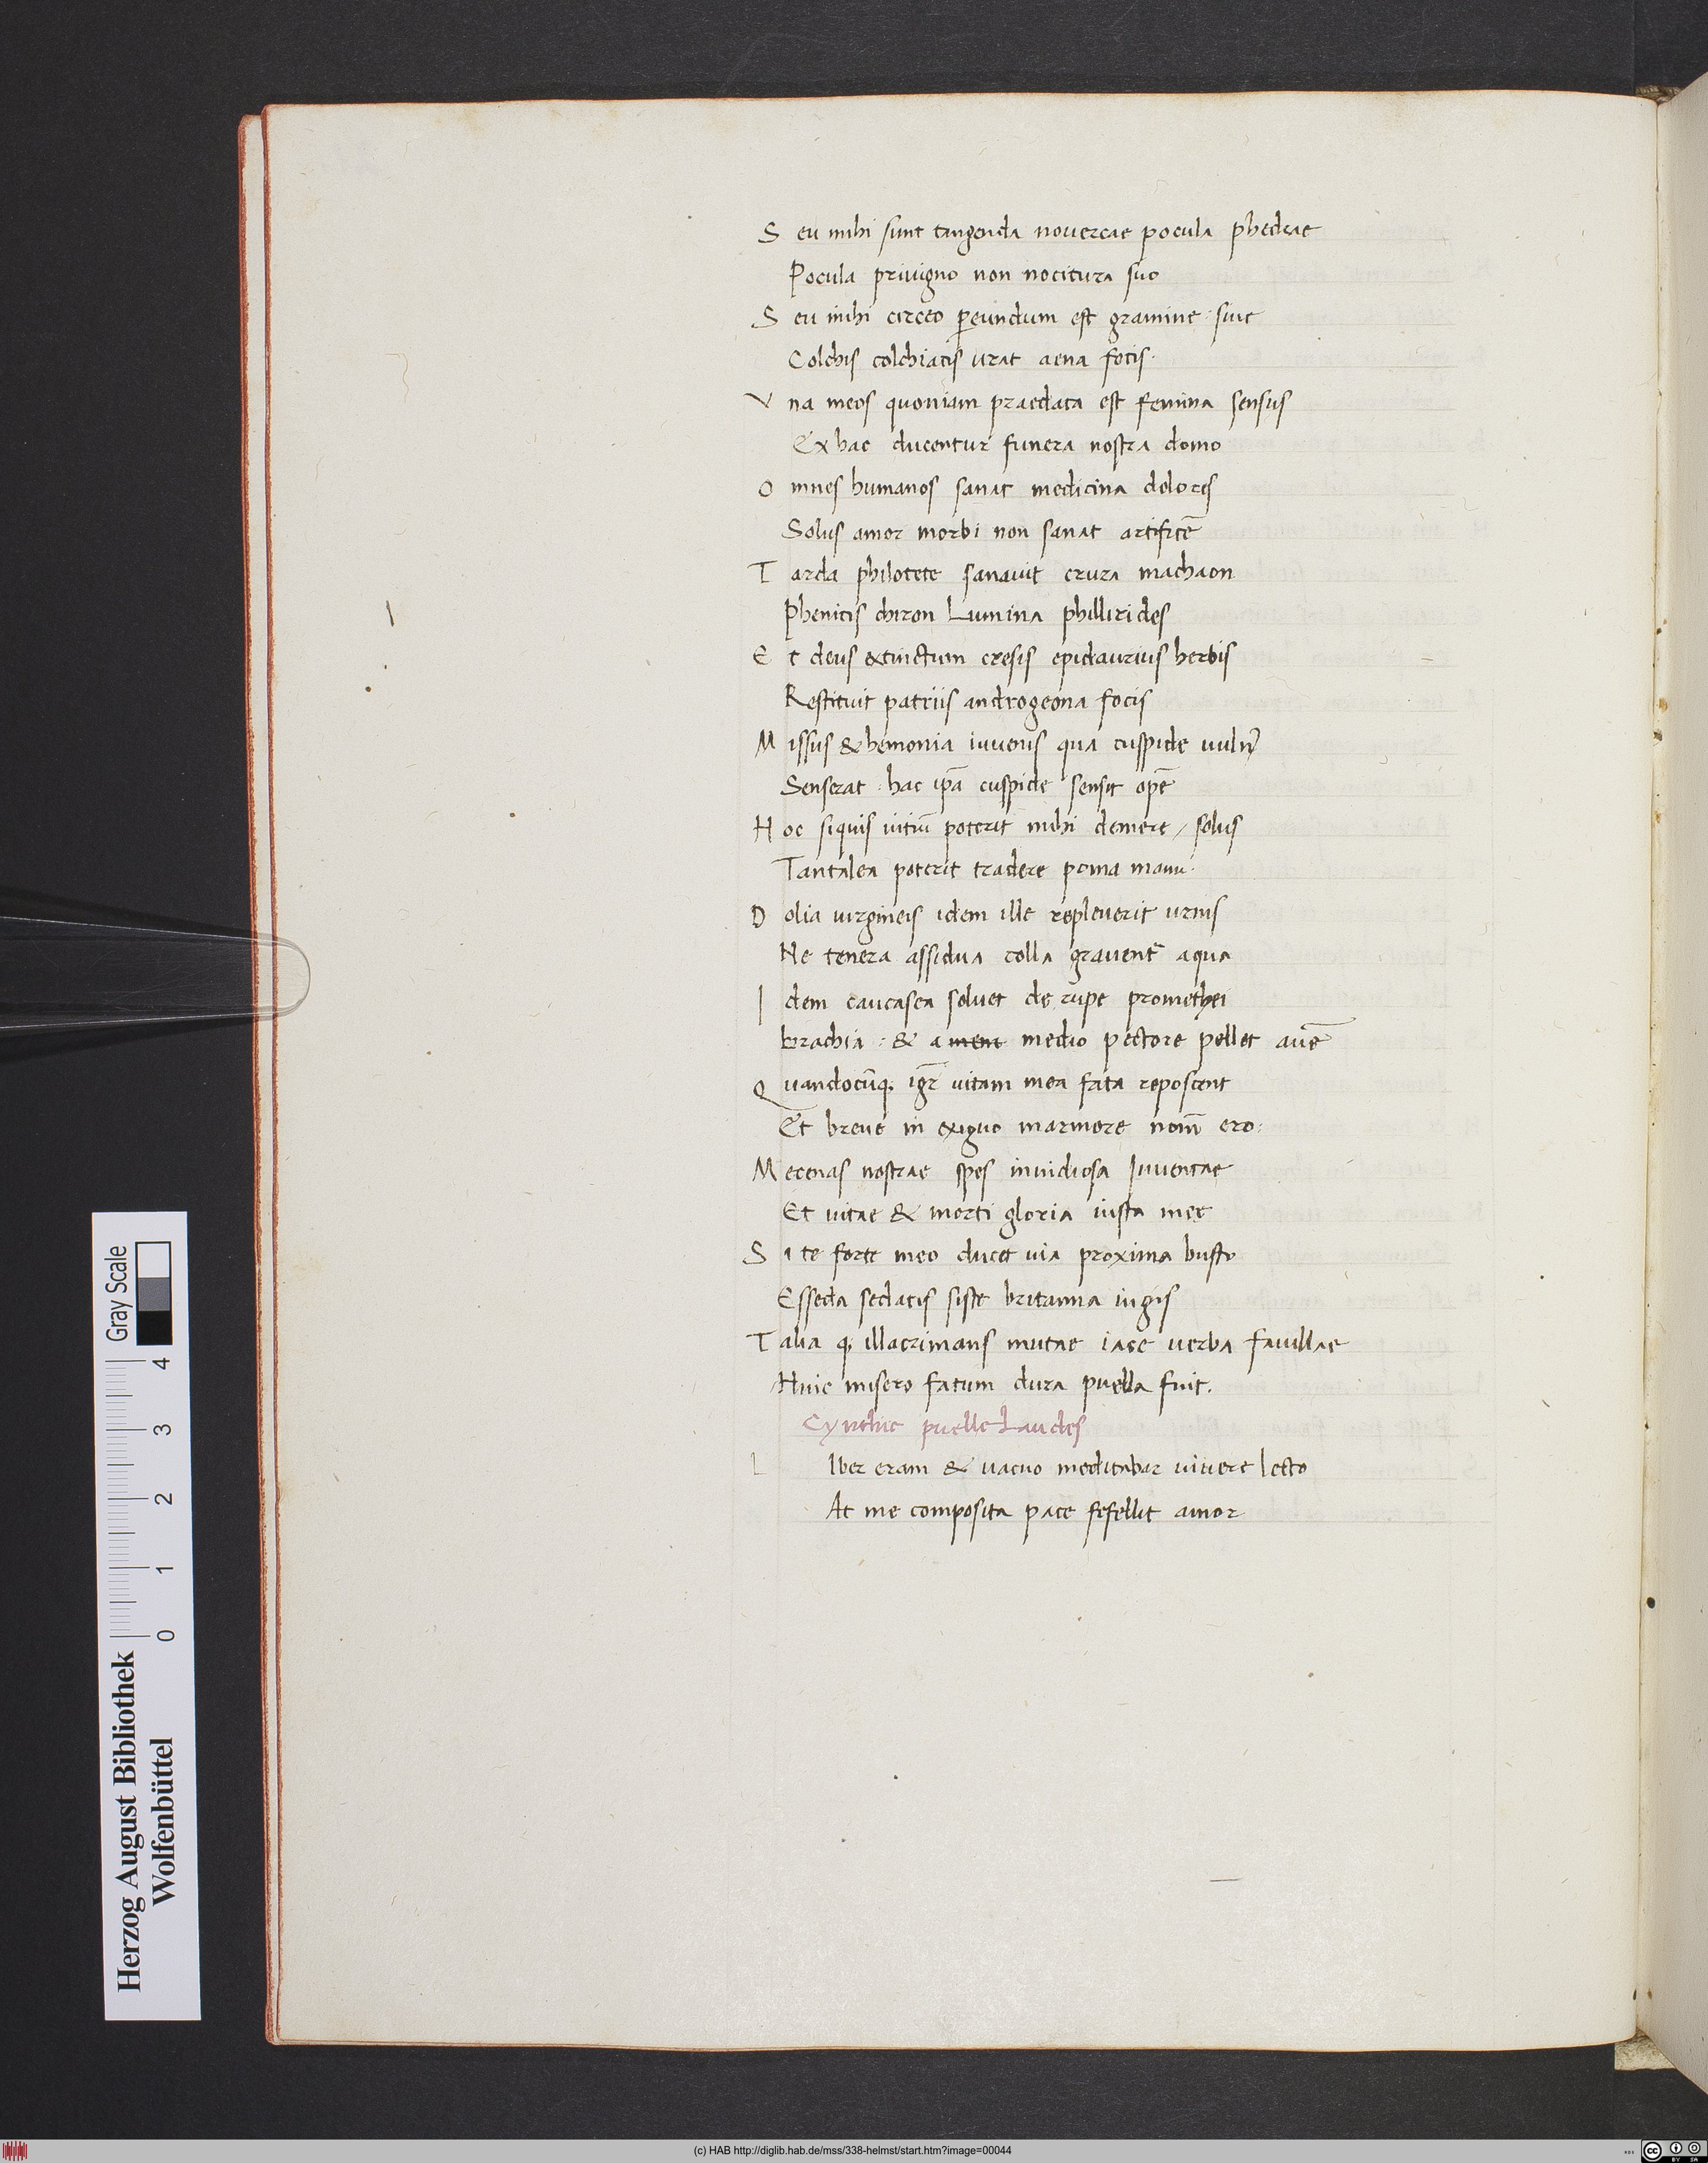 S eu mihi sunt tangenda nouercae pocula phedrae
Pocula priuigno non nocitura suo
S eu mihi circeo p̱eundum est gramine : siue
Colchis colchiacis urat aena focis.
V na meos quoniam praedata est femina sensus
Ex hac ducentur funera nostra domo
O mnes humanos sanat medicina dolores
Solus amor morbi non sanat artificē
T arda philotete sanauit crura machaon
Phenicis chiron Lumina phillirides
E t deus extinctum cresis epidaurius herbis
Restituit patriis androgeona focis
M issus & hemonia iuuenis qua cuspide uuln̄
Senserat : hac ip̄a cuspide sensit opē
H oc siquis uitiū poterit mihi demere / solus
Tantalea poterit tradere poma manu.
D olia uirgineis idem ille repleuerit urnis
Ne tenera assidua colla grauent᷑ aqua
I dem caucasea soluet de rupe promethei
brachia : & a ment medio pectore pellet auē
Q uandocūq, igr̄ uitam mea fata reposcent
Et breue in exiguo marmore nom̄ ero:
M ecenas nostrae spes inuidiosa Iuuentae
Et uitae & morti gloria iusta meę
S i te forte meo ducet uia proxima busto
Esseda sedatis siste britanna iugis
T alia q, illacrimans mutae iace uerba fauillae
Huic misero fatum dura puella fuit.
Cynthie puelle Laudes
L Iber eram & uacuo meditabar uiuere lecto
At me composita pace fefellit amor
Gray Scale
4 3 2 1 0
Herzog August Bibliothek
Wolfenbüttel
(c) HAB http://diglib.hab.de/mss/338-helmst/start.htm?image=00044
cc BY SA